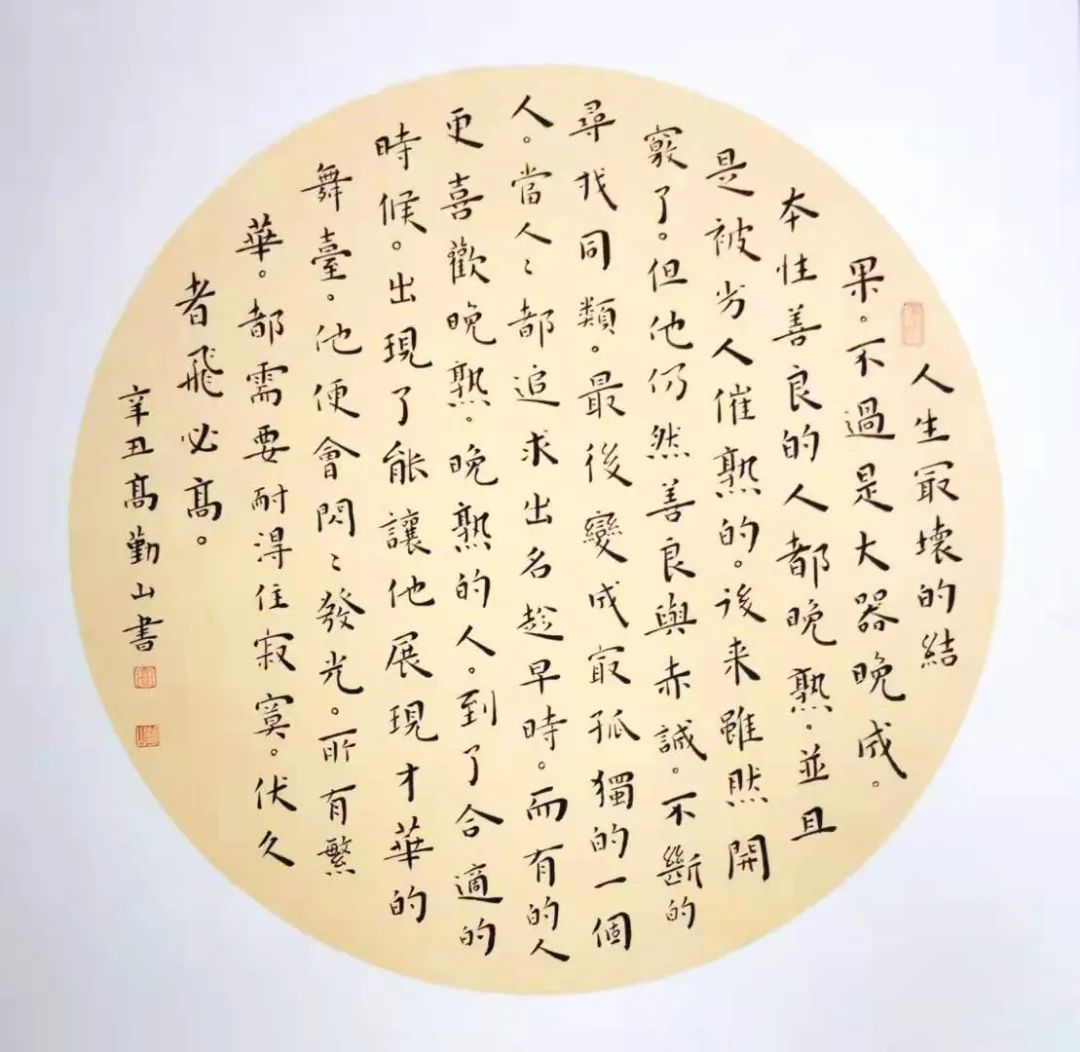 人生冣壞的結
果。不過是大器晚成。
本性善良的人都晚熟。並且
是被劣人催熟的。後来雖然開
竅了。但他仍然善良與赤誠。不斷的
尋找同類。最後變成冣孤獨的一個
人。當人〻都追求出名趁早時。而有的人
更喜歡晚熟。晚熟的人。到了合適的
時候。出現了能讓他展現才華的
舞臺。他便會閃〻發光。所有繁
華。都需要耐得住寂寞。伏久
者飛必高。
辛丑高勤山書